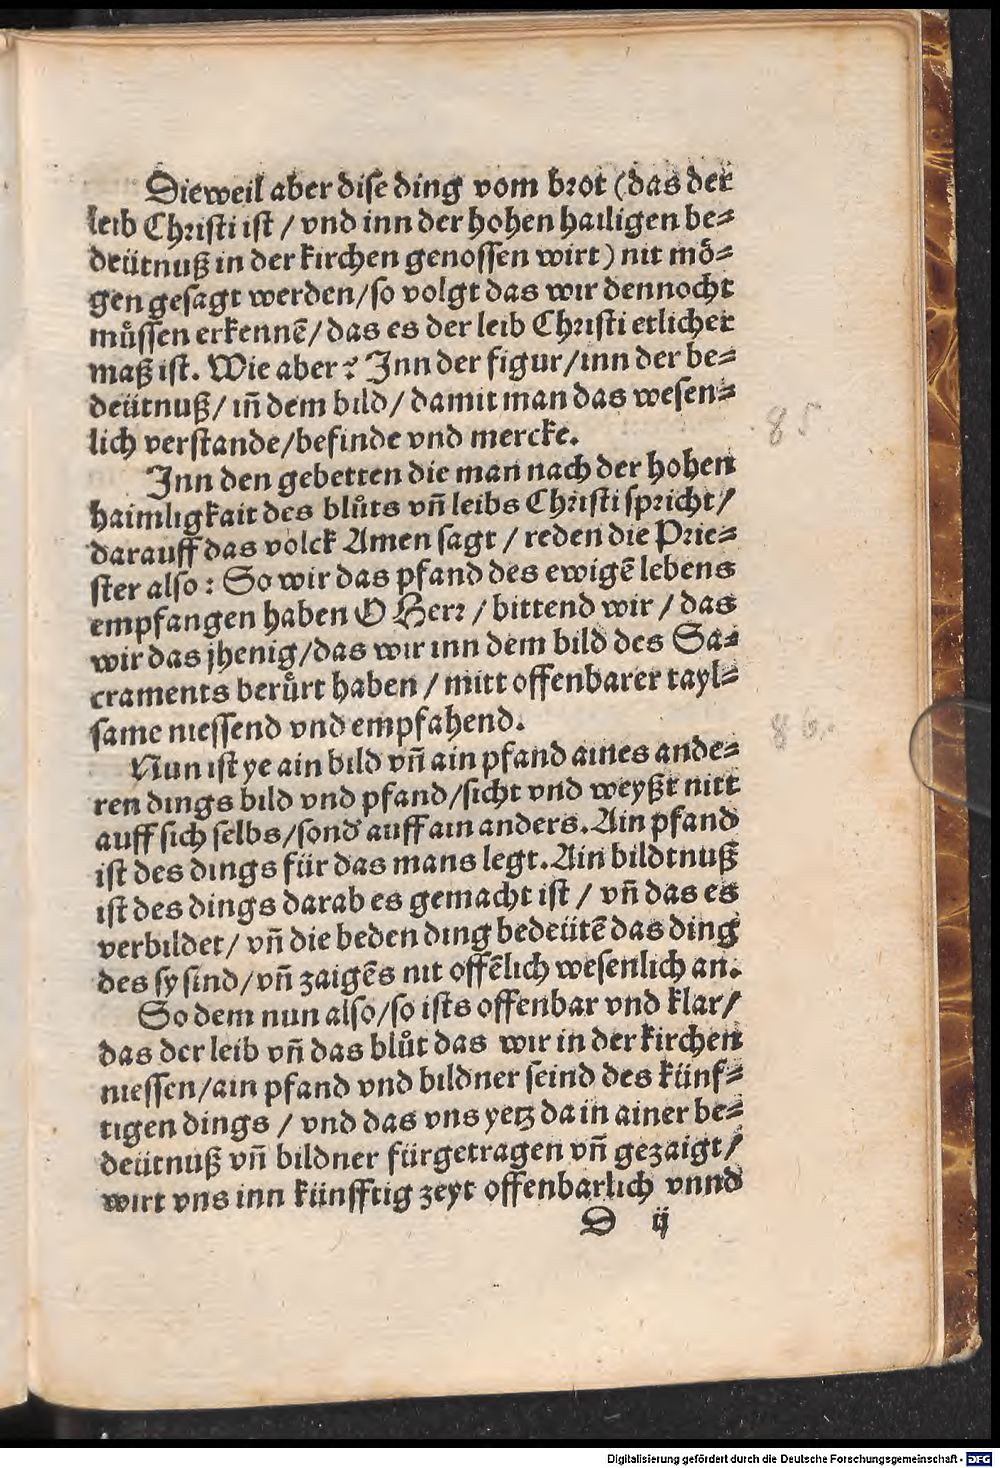 Dieweil aber dise ding vom brot (das der
leib Christi ist / vnd inn der hohen hailigen be⸗
deütnuß in der kirchen genossen wirt) nit mö⸗
gen gesagt werden/so volgt das wir dennocht
müssen erkennē/das es der leib Christi etlicher
maß ist. Wie aber? Inn der figur/inn der be⸗
deütnuß/ iñ dem bild/ damit man das wesen⸗
lich verstande/befinde vnd mercke.
85.
Inn den gebetten die man nach der hohen
haimligkait des blůts vñ leibs Christi spricht/
darauff das volck Amen sagt / reden die Prie⸗
ster also: So wir das pfand des ewigē lebens
empfangen haben O Herr / bittend wir / das
wir das jhenig/das wir inn dem bild des Sa⸗
craments berůrt haben / mitt offenbarer tayl⸗
same niessend vnd empfahend.
86.
Nun ist ye ain bild vñ ain pfand aines ande⸗
ren dings bild vnd pfand/sicht vnd weyßt nitt
auff sich selbs/sond' auff ain anders. Ain pfand
ist des dings für das mans legt. Ain bildtnuß
ist des dings darab es gemacht ist / vñ das es
verbildet/ vñ die beden ding bedeütē das ding
des sy sind/vñ zaigēs nit offēlich wesenlich an.
So dem nun also/so ists offenbar vnd klar/
das der leib vñ das blůt das wir in der kirchen
niessen/ain pfand vnd bildner seind des künf⸗
tigen dings / vnd das vns yetz da in ainer be⸗
deütnuß vñ bildner fürgetragen vñ gezaigt/
wirt vns inn künfftig zeyt offenbarlich vnnd
D ij
Digitalisierung gefördert durch die Deutsche Forschungsgemeinschaft - DFG